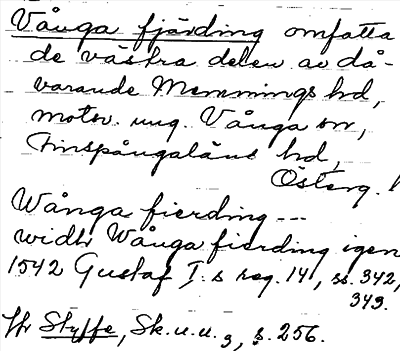 Vånga fjärding omfatta
de västra delen av då-
varande Memmings hd,
motsv. ung. Vånga sn,
Finspångaläns hd,
Österg. l
Wånga fierding ---
widh Wånga fierding igen
1542 Gustaf I:s reg. 14, ss. 342,
343.
Jfr Styffe, Sk.u.u. 3, s. 256.